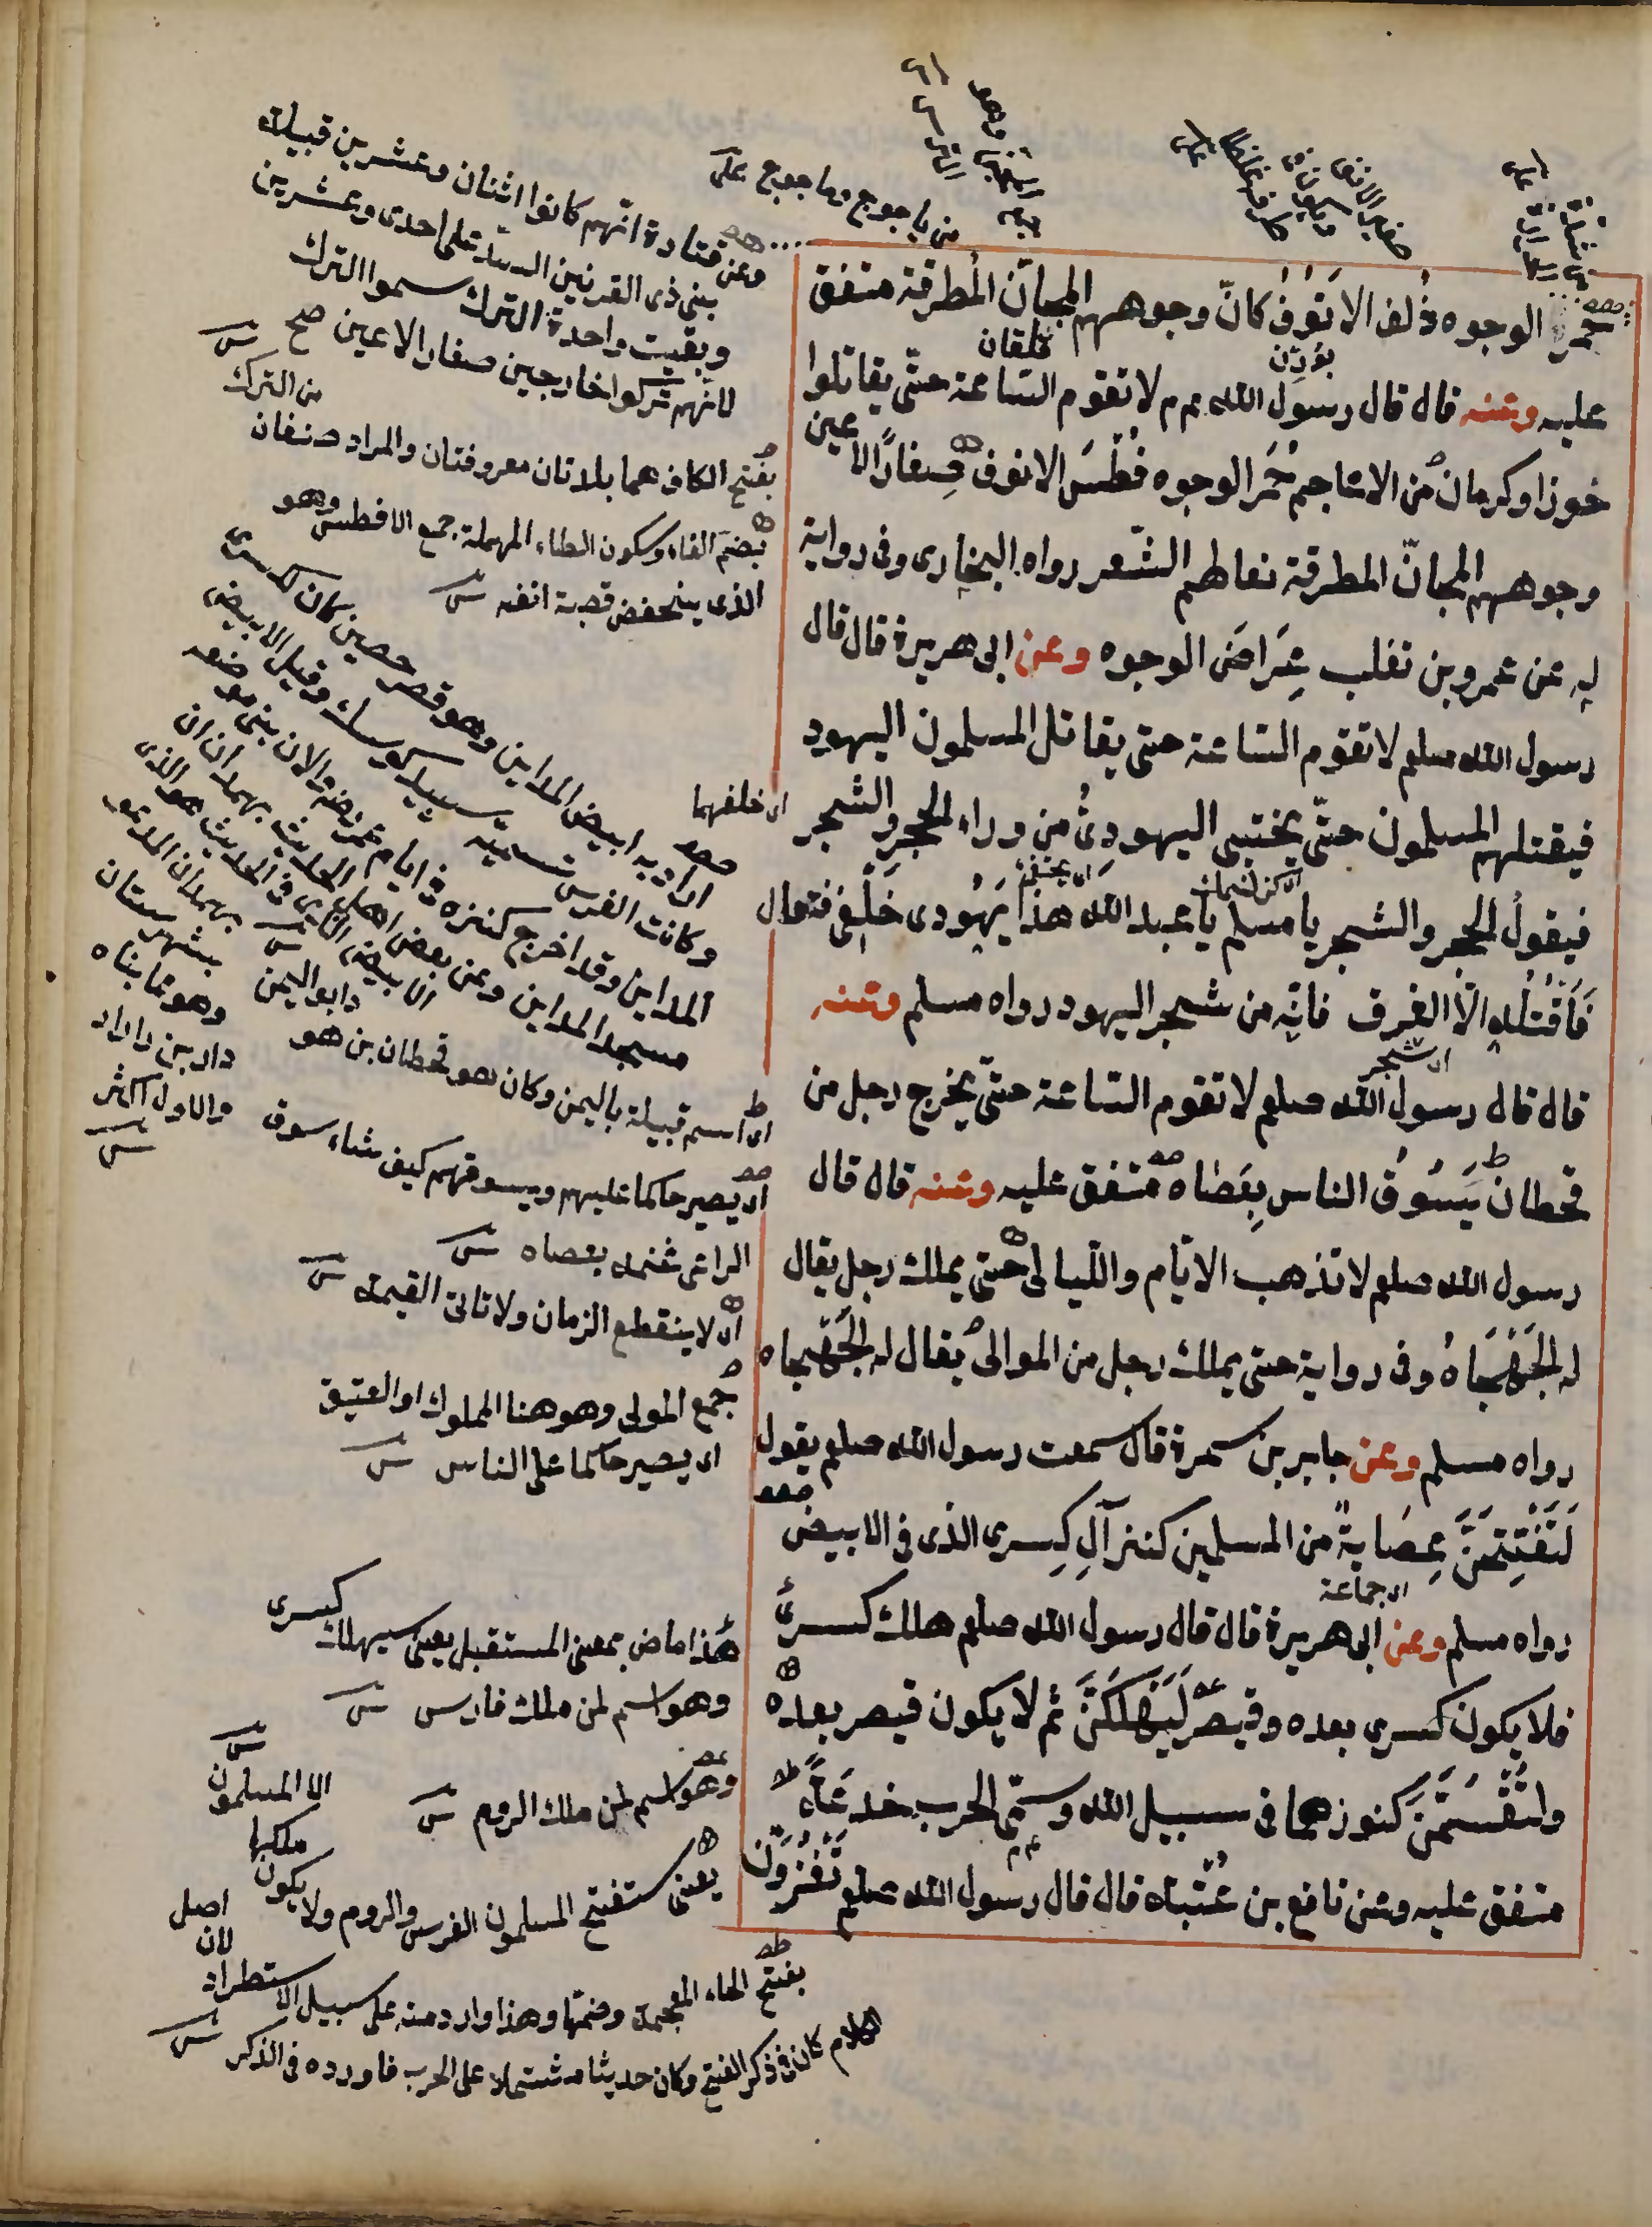 حمر الوجوه ذُلف الانوف كانّ وجوههم المجانّ المُطرقة متفق
عليه وعنه قال قال رسول الله عم م لا تقوم الساعة حتّى يقاتلوا
خوزا وكرمان من الاعاجم حُمَر الوجوه فُطْسَ الانوف صِغارًا الاعين
وجوههم المجانّ المطرقة نعالهم الشّعر رواه البخارى وفى رواية
له عن عمرو بن تغلب عِرَاضَ الوجوه وعن ابى هريرة قال قال
رسول الله صلعم لا تقوم الساعة حتى يقاتل المسلمون اليهود
فيقتلهم المسلمون حتّى يختبى اليهودىُّ من وراء الحجر والشجر
فيقولُ الحجر والشجر يا مسلم يا عبد الله هذا يَهُودى خَلْفى فتعال
فَاقْتُلْه الّا الغرقد فانّه من شجر اليهود رواه مسلم وعنه
اى شجر
قال قال رسول الله صلعم لا تقوم الساعة حتّى يخرج رجل من
قحطان يَسُوقُ الناس بِعَصَاه متفق عليه وعنه قال قال
رسول الله صلعم لا تذهب الايّام واللّيالى حتّى يملك رجل يقال
له الجَهْجَاهُ وفى رواية حتى يملك رجل من الموالى يُقال له الجَهْجاه
رواه مسلم وعن جابر بن سمرة قال سمعت رسول الله صلعم يقول
لَتَفْتِحَنَّ عِصَابةً من المسلمين كنز آلِ كِسرى الذى فى الابيض
اى جماعة
رواه مسلم وعن ابى هريرة قال قال رسول الله صلعم هلك كسرى
فلا يكون كسرى بعده وقيصر لَيَهْلَكَنَّ ثم لا يكون قيصر بعده
ولتُقْسَمَنَّ كنوزهما فى سبيل الله وسمّى الحرب خدعَةً
متفق عليه وعن نافع بن عُتْبه قال قال رسول الله صلعم تَغْزُوْنَ
من ياجوج وماجوج على
وعن قتادة انّهم كانوا اثنان وعشرين قبيلة
بنى ذى القرنين السد على احدى وعشرين
وبقيت واحدة الترك سموا الترك
لانّهم تركوا خارجين صغار الاعين صح ش
من الترك
بفتح الكاف هما بلدتان معروفتان والمراد صنفان
بضم الفاء وسكون الطاء المهملة جمع الافطس وهو
الذى ينخفض قصبة انفه ش
اى خلفهما
اراد به ابيض المداين وهو قصر حصين كان لكسرى
وكانت الفرس تسميه سپيد كوسك وقيل الابيض
المداين وقد اخرج كنزه فى ايام عمر رضه والان بنى موضعه
مسجد المداين وعن بعض اهل الحديث بهمدان ان
الابيض الذى فى الحديث هو الذى
بهمدان المدعو
بشهرستان
وهو مما بناه
دار بن دارا
والاول اكثر
ش
اى اسم قبيلة باليمن وكان هو قحطان بن هو
دابو اليمن ش
اى يصير حاكما عليهم ويسوقهم كيف شاء سوق
الراعى غنمه بعصاه ش
اى لا ينقطع الزمان ولا تاتى القيمة ش
جمع المولى وهو هنا المملوك او العتيق
اى يصير حاكما على الناس ش
هذا ماض بمعنى المستقبل يعنى سيهلك كسرى
وهو اسم لمن ملك فارس ش
وهو اسم لمن ملك الروم ش
يعنى ستفتح المسلمون الفرس والروم ولا يكون
ملكها
الا المسلمون
ش
بفتح الخاء المعجمة وضمّها وهذا وارد منه على سبيل الاستطراد
لان
اصل
الكلام كان فى ذكر الفتح وكان حديثا مشتملا على الحرب فاورده فى الذكر ش